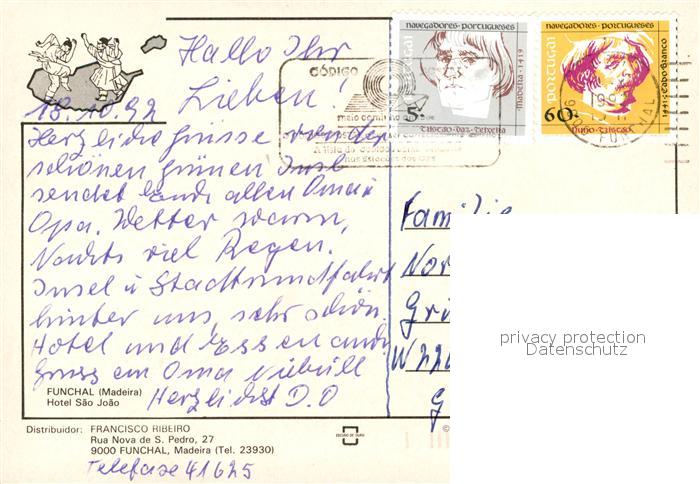 Hallo Ihr
Lieben!
18.10.92
Herzliche Grüsse von der
schönen grünen Insel
sendet Euch allen Oma u
Opa. Wetter warm,
Nachts viel Regen.
Insel u Stadtrundfahrt
hinter uns, sehr schön.
Hotel und Essen auch
Gruss an Oma
Herzlichst D.O
FUNCHAL (Madeira)
Hotel São João
Distribuidor: FRANCISCO RIBEIRO
Rua Nova de S. Pedro, 27
9000 FUNCHAL, Madeira (Tel. 23930)
41625
ESCUDO DE OURO
©
NAVEGADORES PORTUGUESES
PORTUGAL
MADEIRA·1419
5
TRISTÃO VAZ TEIXEIRA
NAVEGADORES PORTUGUESES
PORTUGAL
1441·CABO BRANCO
60
NUNO TRISTÃO
CÓDIGO
meio caminho
nas estações dos CTT
FUNCHAL
Familie
Nor
Gri
W 22
G
privacy protection
Datenschutz